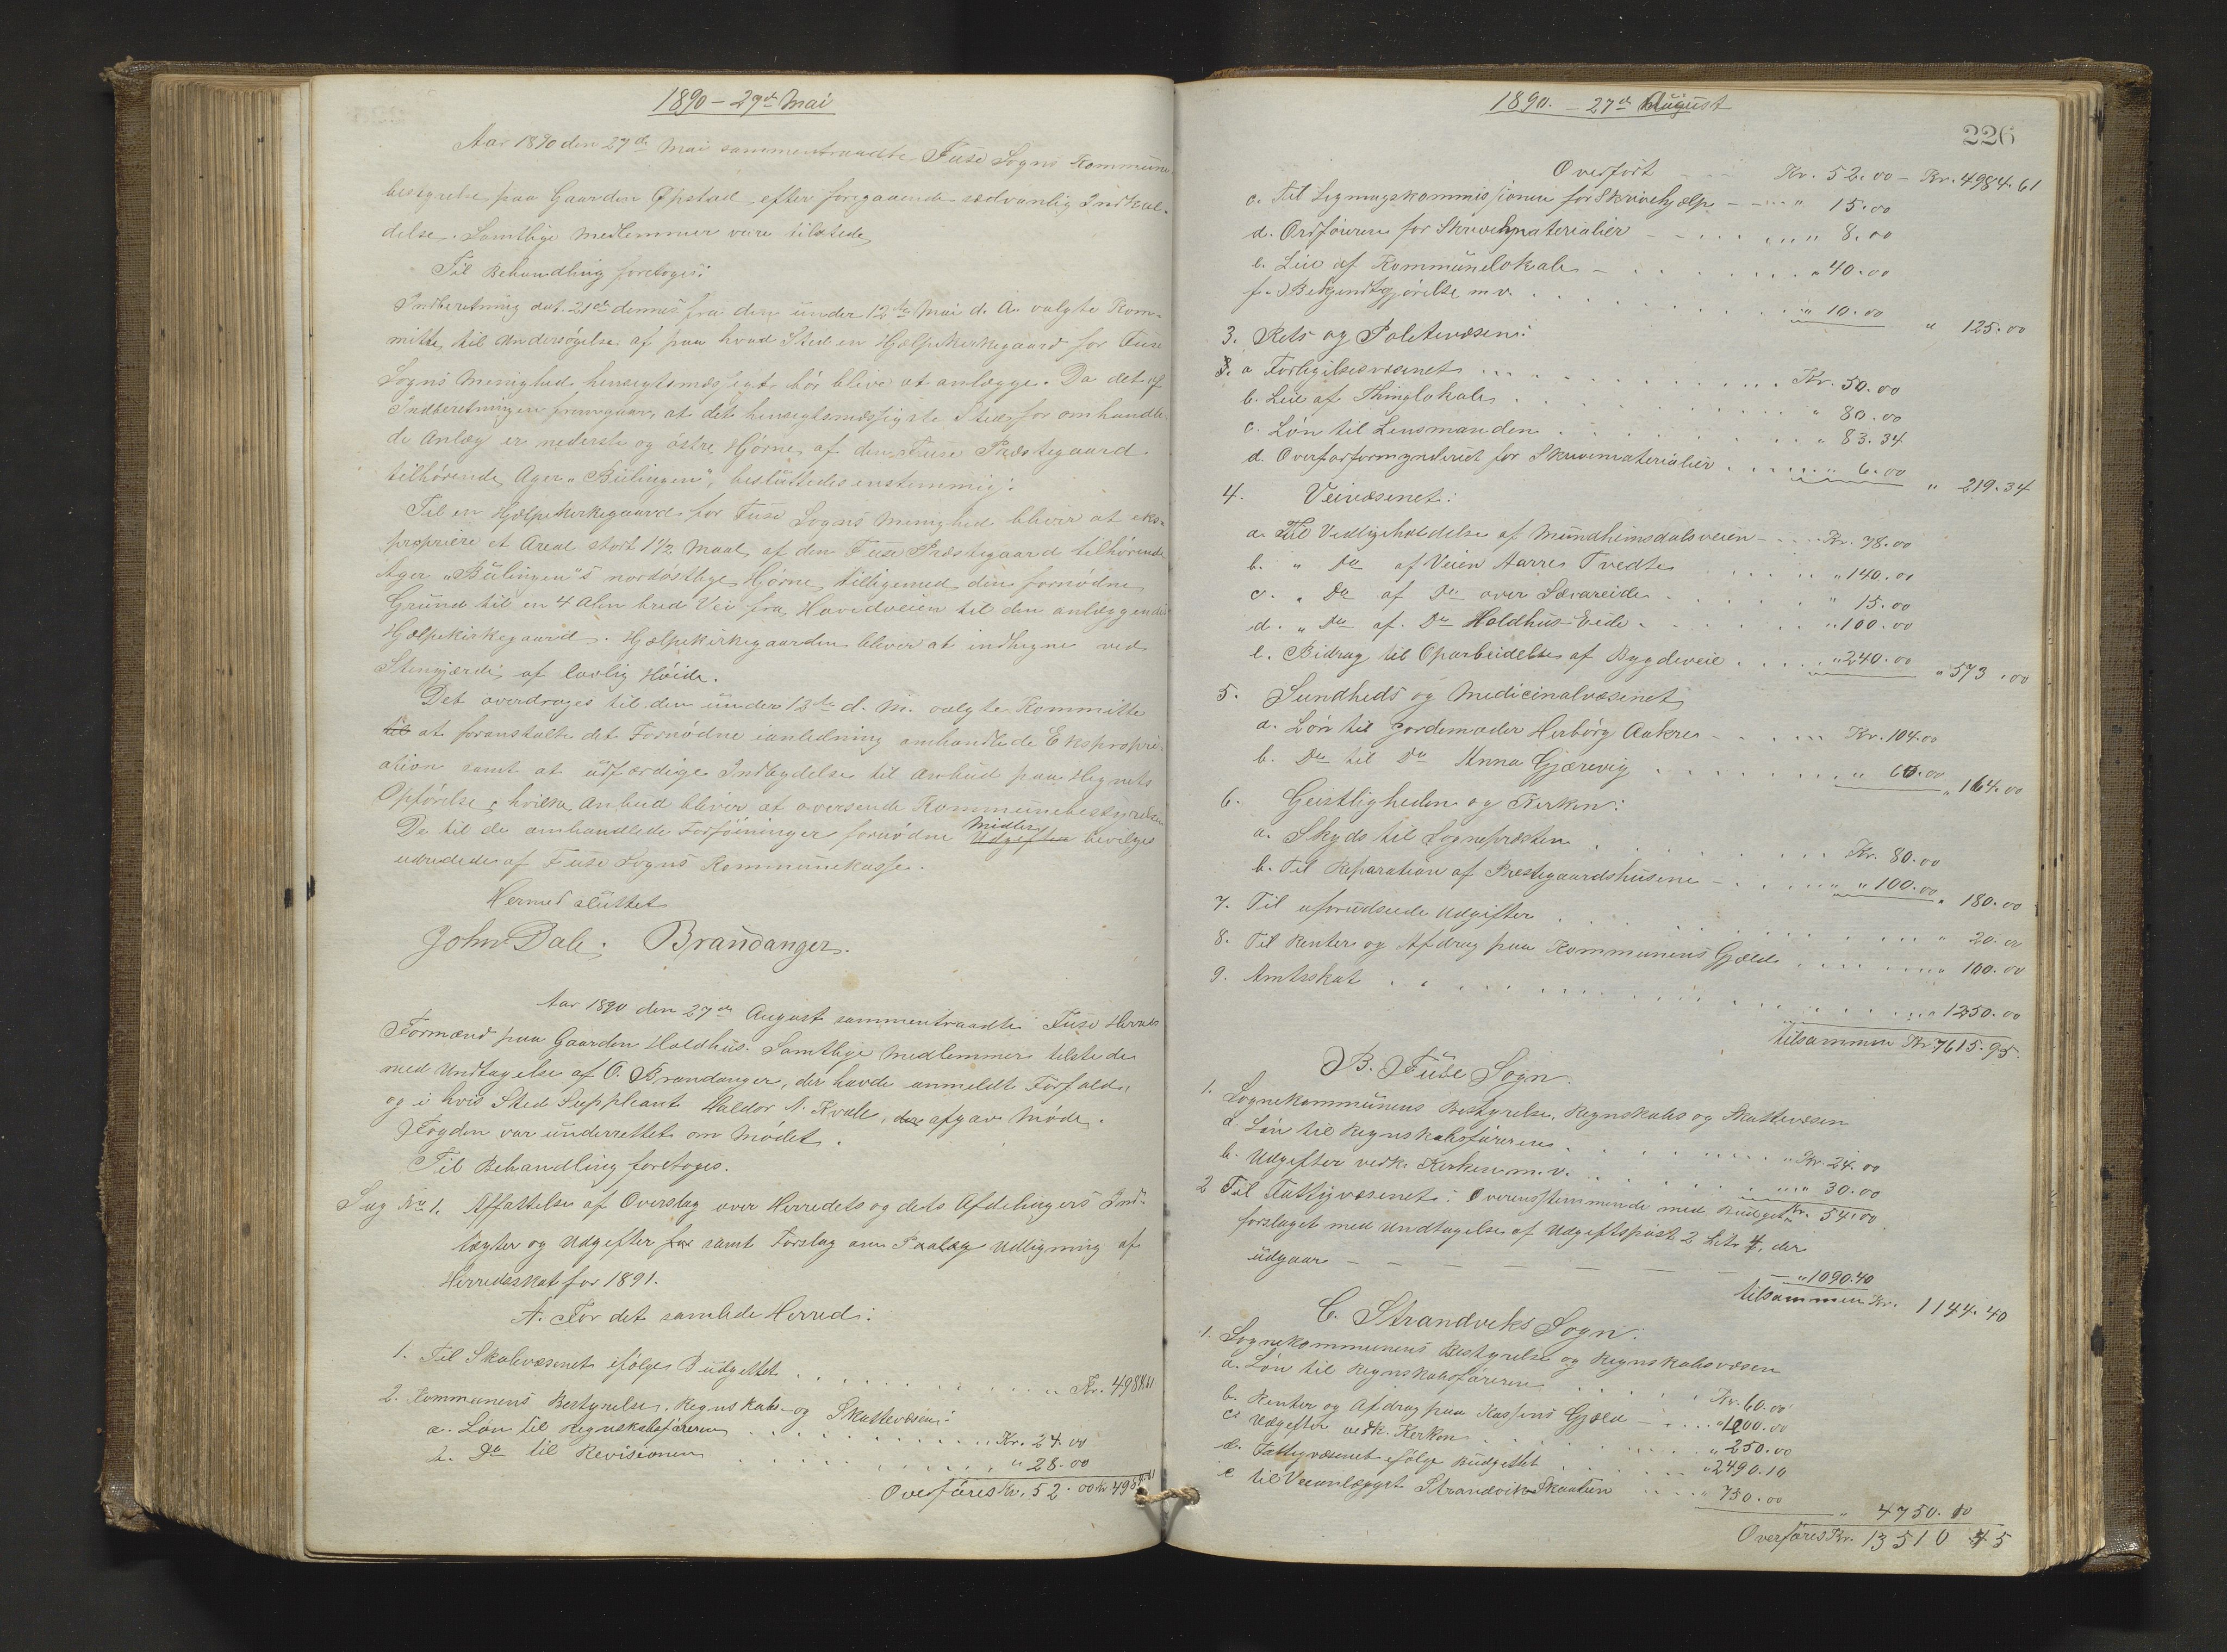 1890 - 27de Mai
Aar 1890 den 27de Mai sammentraadte Fuse Sogns Kommune-
bestyrelse paa Gaarden Opstad efter foregaaende sædvanlig Indkal-
delse. Samtlige Medlemmer vare tilstede
Til Behandling foretoges:
Indberetning dat. 21de dennes fra den under 12te Mai d. A. valgte Kom-
mitte, til Undersøgelse af paa hvad Sted en Hjælpekirkegaard for Fuse
Sogns Menighed hensigtsmæssigst bør blive at anlægge. Da det af
Indberetningen fremgaar, at det hensigtsmæssigste Sted for omhandle-
de Anlæg er nederste og østre Hjørne af den Fuse Præstegaard
tilhørende Ager "Bülingen", besluttedes enstemmig:
Til en Hjælpekirkegaard for Fuse Sogns Menighed bliver at eks-
propriere et Areal stort 1 1/2 Maal af den Fuse Præstegaard tilhørende
Ager "Bülingen"s nordøstlige Hjørne tilligemed den fornødne
Grund til en 4 Alen bred Vei fra Hovedveien til den anlæggende
Hjælpekirkegaard. Hjælpekirkegaarden bliver at indhegne ved
Stengjærde af lovlig Høide.
Det overdroges til den under 12te d. M. valgte Kommitte
til at foranstalte det Fornødne ianledning omhandlede Ekspropri-
ation samt at udfærdige Indbydelse til Anbud paa Hegnets
Opførelse, hvilke Anbud bliver at oversende Kommunebestyrelsen
De til de omhandlede Forføininger fornødne Udgifter Midler bevilges
udredede af Fuse Sogns Kommunekasse.
Hermed sluttet
John Dale. Brandanger.
Aar 1890 den 27de August sammentraadte Fuse Herreds
Formænd paa Gaarden Holdhus. Samtlige Medlemmer tilstede
med Undtagelse af O. Brandanger, der havde anmeldt Forfald,
og i hvis Sted Suppleant Haldor N. Kvale, der afgav Møde.
Fogden var underrettet om Mødet.
Til Behandling foretoges.
Sag No 1. Affattelse af Overslag over Herredets og dets Afdelingers Ind-
tægter og Udgifter for samt Forslag om Paalæg Udligning af
Herredsskat for 1891.
A. For det samlede Herred:
1. Til Skolevæsenet ifølge Budgettet . . . Kr. 4984.61
2. Kommunens Bestyrelse, Regnskabs- og Skattevæsen:
a. Løn til Regnskabsføreren . . . Kr. 24.00
b. Do til Revisionen . . . " 28.00
Overføres Kr. 52.00 Kr 4984.61
1890. - 27de August
226
Overført - - - Kr. 52.00 - Kr. 4984.61
c. Til Ligningskommissionen for Skrivehjælp - - - " 15.00
d. Ordføreren for Skrivematerialier - - . . . " 8.00
e. Leie af Kommunelokale - . . . " 40.00
f. Bekjendtgjørelse m.v. . . . " 10.00 " 125.00
3. Rets og Politivæsen:
a Forligelsesvæsenet . . . Kr. 50.00
b. Leie af Thinglokale . . . " 80.00
c. Løn til Lensmanden . . . " 83.34
d. Overformynderiet for Skrivematerialier . . . " 6.00 " 219.34
4. Veivæsenet:
a. Til Vedligeholdelse af Mundheimsdalsveien - - Kr. 78.00
b. " Do af Veien Aarre Tvedte . . . " 140.00
c. " Do af Do over Sævareide . . . " 15.00
d. " Do af Do Holdhus-Eide . . . " 100.00
e. Bidrag til Oparbeidelse af Bygdeveie . . . " 240.00 " 573.00
5. Sundheds og Medicinalvæsenet
a. Løn til Jordemoder Herborg Aakre - . . . Kr. 104.00
b. Do til Do Anna Gjærevig . . . " 60.00 " 164.00
6. Geistligheden og Kirken:
a. Skyds til Sognepræsten . . . Kr. 80.00
b. Til Reparation af Præstegaardshusene - . . . " 100.00 " 180.00
7. Til uforudseede Udgifter . . . " 20.00
8. Til Renter og Afdrag paa Kommunens Gjæld . . . " 100.00
9. Amtsskat . . . " 1250.00
tilsammen Kr. 7615.95
B. Fuse Sogn.
1. Sognekommunens Bestyrelse, Regnskabs og Skattevæsen
a. Løn til Regnskabsføreren . . . Kr. 24.00
b. Udgifter vedk. Kirken m.v. . . . " 30.00
Kr. 54.00
2 Til Fattigvæsenet: Overensstemmende med Budget-
forslaget med Undtagelse af Udgiftspost 2 Litr. f, der
udgaar - - - - " 1090.40
tilsammen Kr. 1144.40
C. Strandviks Sogn:
1. Sognekommunens Bestyrelse og Regnskabsvæsen
a. Løn til Regnskabsføreren . . . Kr. 60.00
b. Renter og Afdrag paa Kassens Gjæld - . . . " 1200.00
c. Udgifter vedk. Kirken . . . " 250.00
d. Fattigvæsenet ifølge Budgettet . . . " 2490.10
e til Veianlægget Strandvik-Skaatun . . . " 750.00 " 4750.10
Overføres Kr. 13510.45